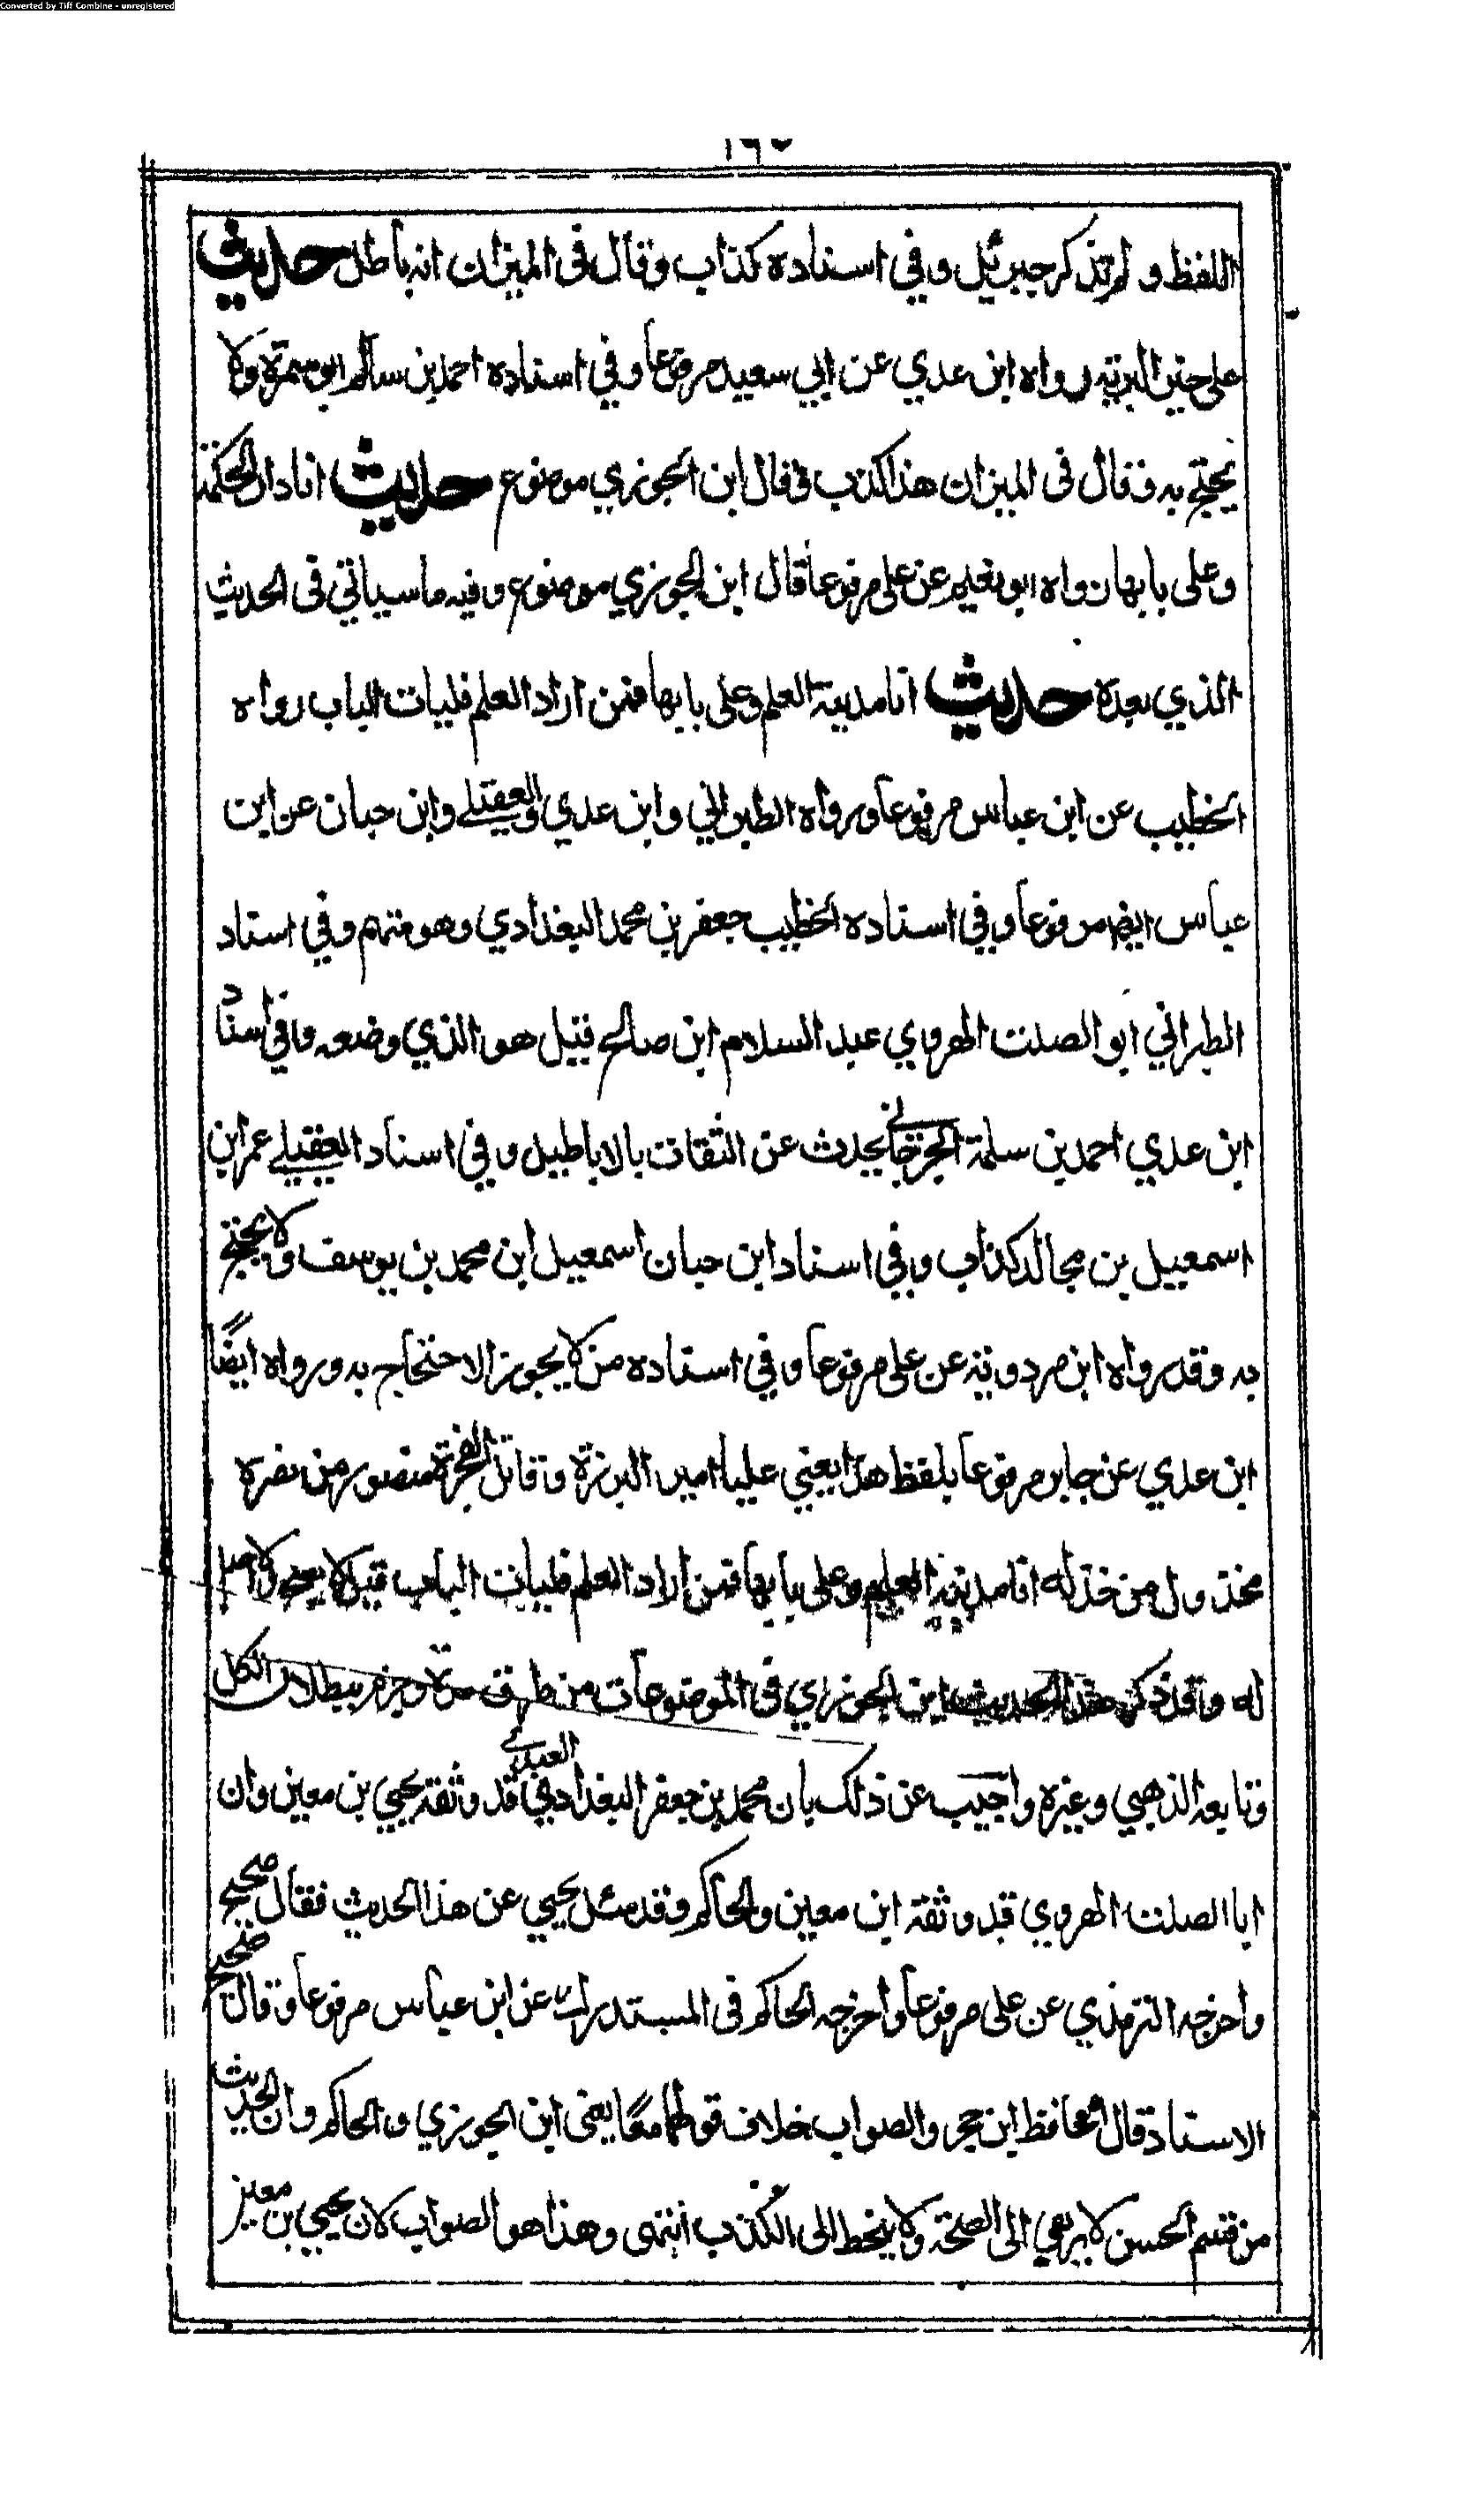 Converted by Tiff Combine - unregistered
اللفظ ولم تذكر جبرئيل وفي اسناده كذاب وقال فى الميزان انه باطل حديث
على خير البرية رواه ابن عدي عن ابي سعيد مرفوعا وفي اسناده احمد بن سالم ابو سمرة ولا
يحتج به وقال فى الميزان هذا كذب وقال ابن الجوزي موضوع حديث انا دار الحكمة
وعلى بابها رواه ابو نعيم عن علي مرفوعا قال ابن الجوزي موضوع وفيه ما سياتي فى الحديث
الذي بعده حديث انا مدينة العلم وعلى بابها فمن اراد العلم فليات الباب رواه
الخطيب عن ابن عباس مرفوعا ورواه الطبراني وابن عدي والعقيلے وابن حبان عن ابن
عباس ايضا مرفوعا وفي اسناده الخطيب جعفر بن محمد البغدادي وهو متهم وفي اسناد
الطبراني ابو الصلت الهروي عبد السلام ابن صالح قيل هو الذي وضعه وفي اسناد
ابن عدي احمد بن سلمة الجرجاني يحدث عن الثقات بالاباطيل وفي اسناد العقيلے عمر ابن
اسمعيل بن مجالد كذاب وفي اسناد ابن حبان اسمعيل ابن محمد بن يوسف ولا يحتج
به وقد رواه ابن مردويه عن علي مرفوعا وفي اسناده من لا يجوز الاحتجاج به ورواه ايضًا
ابن عدي عن جابر مرفوعا بلفظ هذا يعني عليا امير البررة وقاتل الفجرة منصور من نصره
مخذول من خذله انا مدينة العلم وعلى بابها فمن اراد العلم فليات الباب قيل لا يصح ولا اصل
له وقد ذكر هذا الحديث ابن الجوزي فى الموضوعات من طرق عدة وجزم ببطلان الكل
وتابعه الذهبي وغيره واجيب عن ذلك بان محمد بن جعفر البغدادي العبدے قد وثقه يحيي بن معين وان
ابا الصلت الهروي قد وثقه ابن معين والحاكم وقد سئل يحيي عن هذا الحديث فقال صحيح
واخرجه الترمذي عن علي مرفوعا واخرجه الحاكم فى المستدرك عن ابن عباس مرفوعا وقال صحيح
الاسناد قال الحافظ ابن حجر والصواب خلاف قولهما معًا يعنى ابن الجوزي والحاكم وان الحديث
من قسم الحسن لا يرتقي الى الصحة ولا ينحط الى الكذب انتهى وهذا هو الصواب لان يحيي بن معين